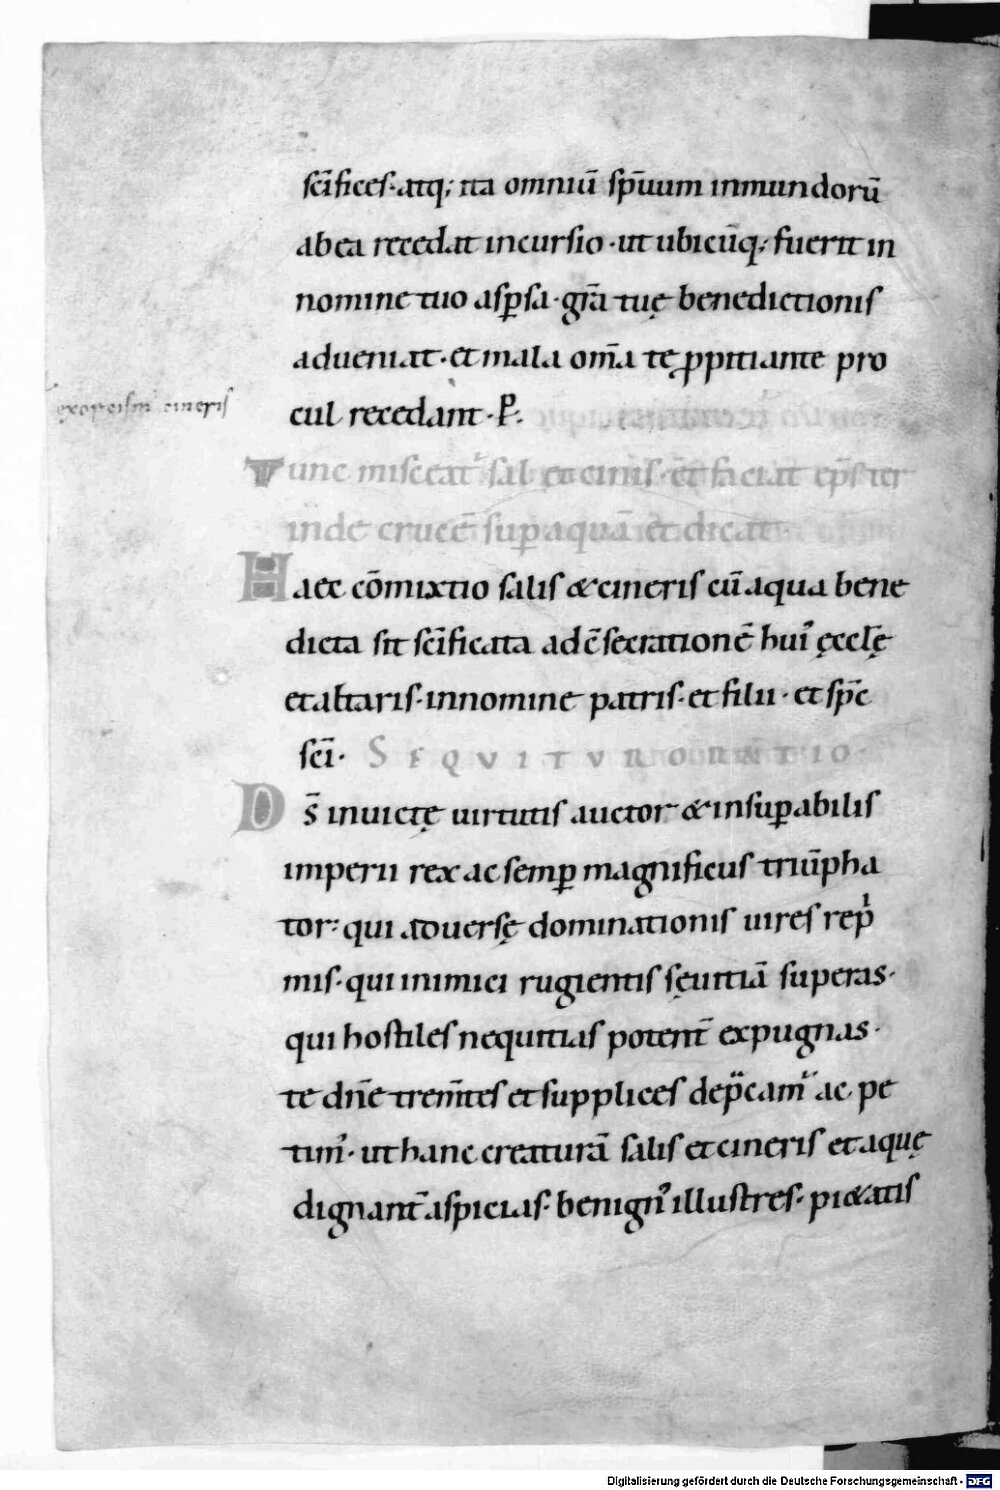 scīfices·atq; ita omniū sp̄uum inmundorū
ab ea recedat incursio·ut ubicūq; fuerit in
nomine tuo asp̱sa·gr̄a tuę benedictionis
adueniat·et mala om̄a te ꝓpitiante pro
exorcism̄ cineris
cul recedant·P̱.
Tunc misceat᷑ sal et cinis·et faciat ep̄s ter
inde crucē sup̱ aquā et dicat
Haec cōmixtio salis & cineris cū aqua bene
dicta sit scīficata ad c̄secrationē hui᾽ ęccl̄ę
et altaris·in nomine patris·et filii·et sp̄c
scī· SEQVITVR ORATIO·
Ds̄ inuictę uirtutis auctor & insup̱abilis
imperii rex ac semp̱ magnificus triūpha
tor: qui aduersę dominationis uires rep̍
mis·qui inimici rugientis sęuitiā superas·
qui hostiles nequitias potent̄ expugnas·
te dn̄e trem̄tes et supplices dep̄cam᷑ ac pe
tim᾽·ut hanc creaturā salis et cineris et aquę
dignant̄ aspicias·benign᾽ illustres·pi&atis
Digitalisierung gefördert durch die Deutsche Forschungsgemeinschaft - DFG